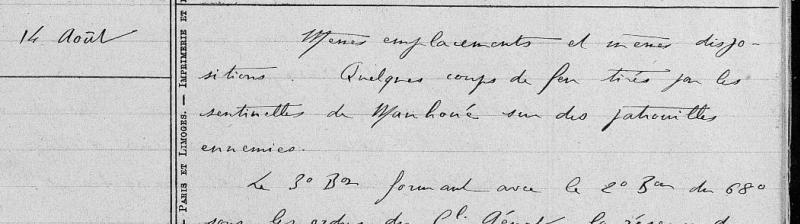 PARIS ET LIMOGES. — IMPRIMERIE ET
14 Août
Mêmes emplacements et mêmes dispo-
sitions. Quelques coups de feu tirés par les
sentinelles de Manhoué sur des patrouilles
ennemies.
Le 3e Bon formant avec le 2e Bon du 68e
sous les ordres du Cl. la réserve